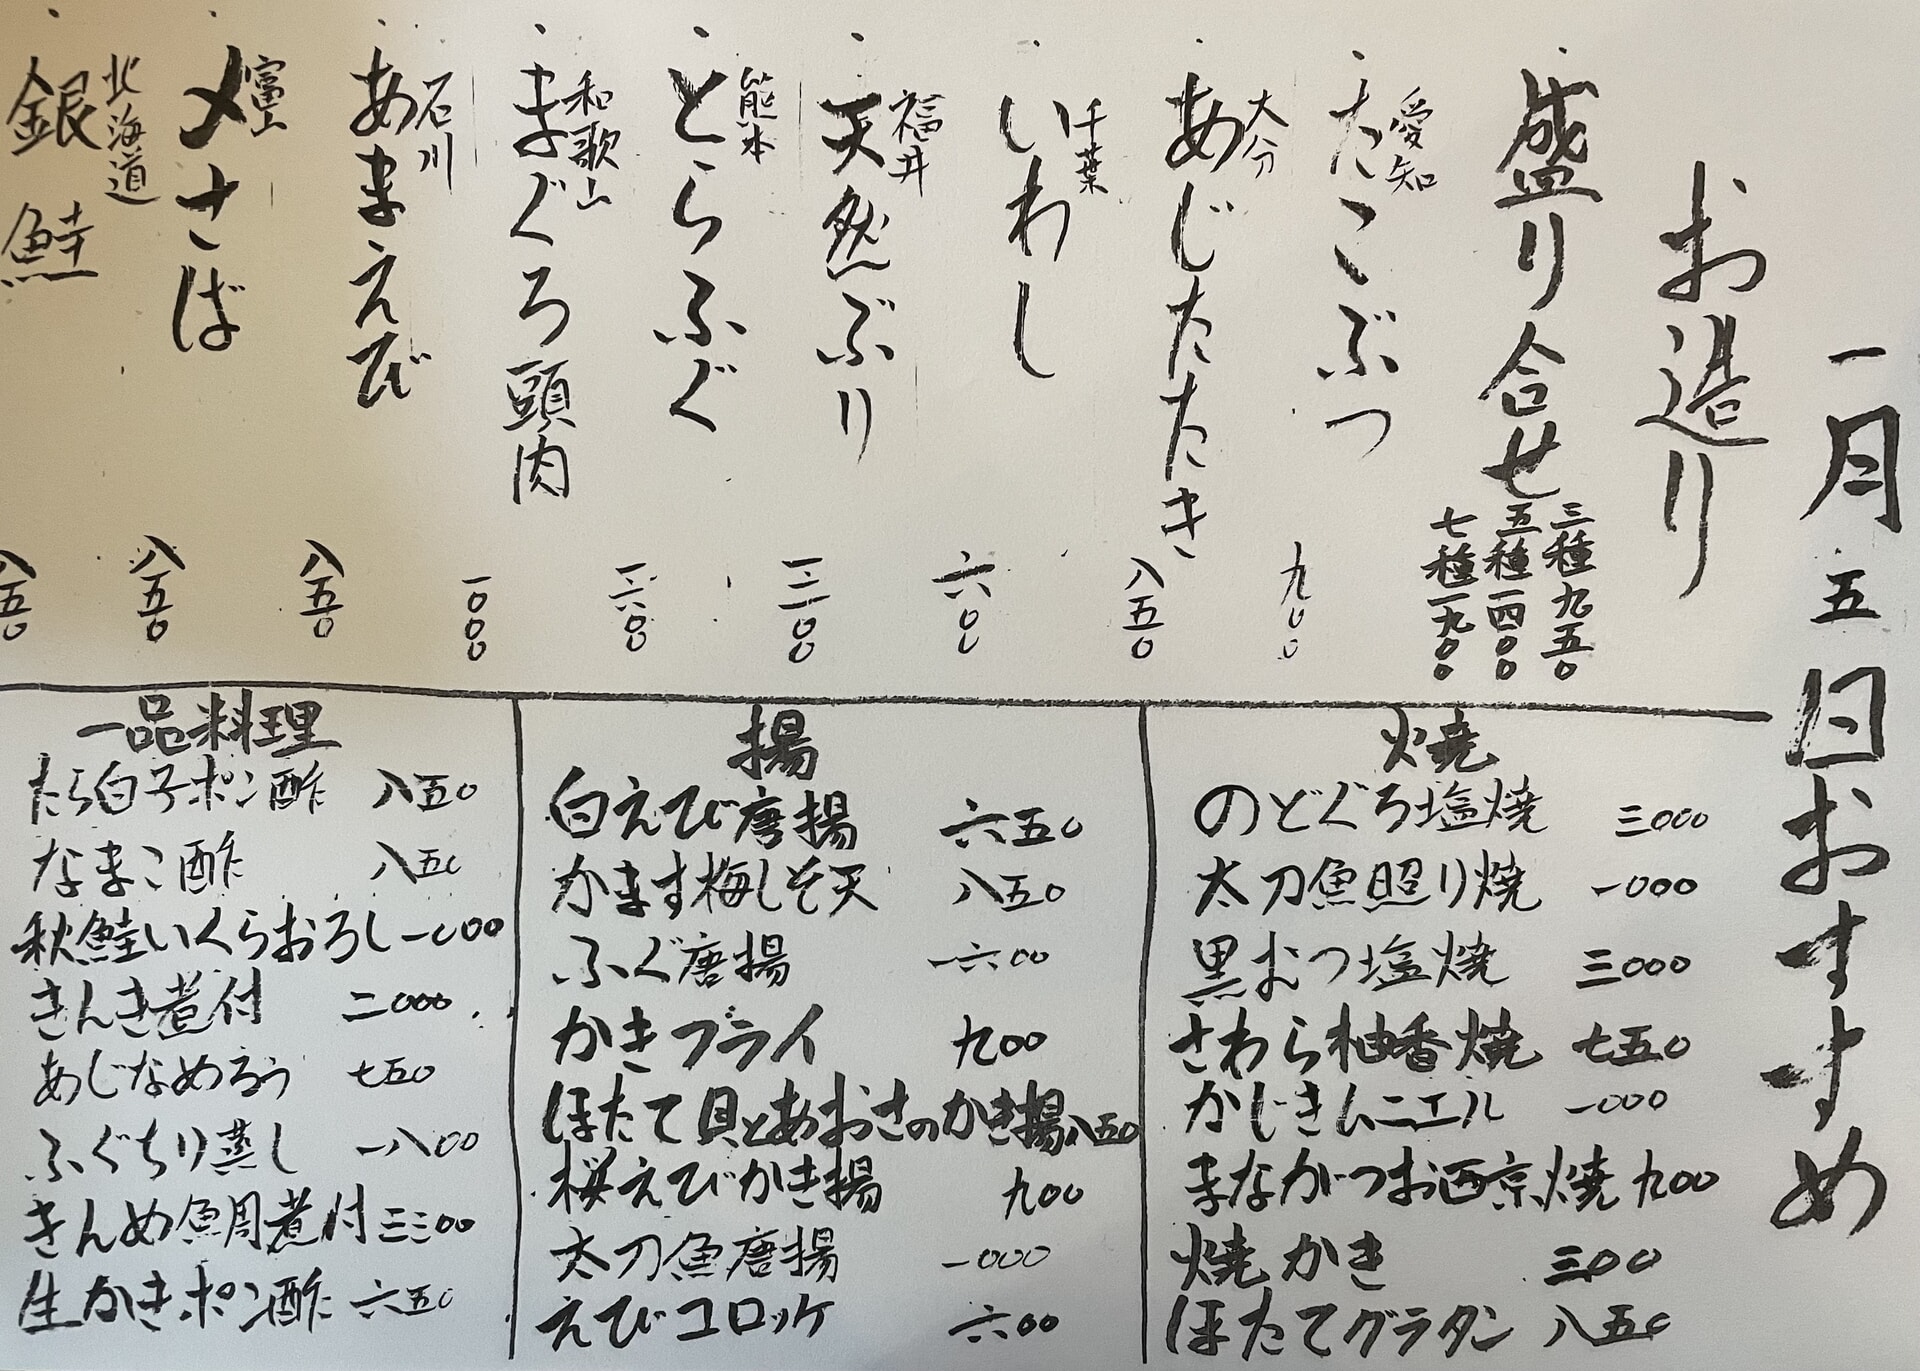 一月五日おすすめ
お造り
盛り合せ
三種九五〇
五種一四〇〇
七種一九〇〇
愛知
たこぶつ
九〇〇
大分
あじたたき
八五〇
千葉
いわし
六〇〇
福井
天然ぶり
熊本
とらふぐ
一六〇〇
和歌山
まぐろ頭肉
一〇〇〇
石川
あまえび
八五〇
富山
〆さば
八五〇
北海道
銀鮭
八五〇
焼
のどぐろ塩焼 三〇〇〇
太刀魚照り焼 一〇〇〇
黒むつ塩焼 三〇〇〇
さわら柚香焼 七五〇
かじきムニエル 一〇〇〇
まながつお西京焼 九〇〇
焼かき 三〇〇
ほたてグラタン 八五〇
揚
白えび唐揚 六五〇
かます梅しそ天 八五〇
ふぐ唐揚 一六〇〇
かきフライ 九〇〇
ほたて貝とあおさのかき揚 八五〇
桜えびかき揚 九〇〇
太刀魚唐揚 一〇〇〇
えびコロッケ 六〇〇
一品料理
たら白子ポン酢 八五〇
なまこ酢 八五〇
秋鮭いくらおろし 一〇〇〇
きんき煮付 二〇〇〇
あじなめろう 七五〇
ふぐちり蒸し 一八〇〇
きんめ鯛煮付 三三〇〇
生かきポン酢 六五〇